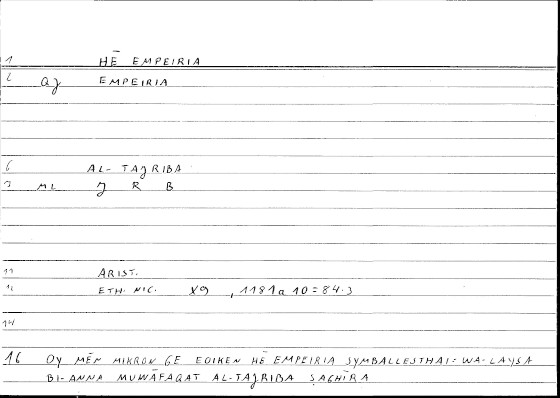 1 HĒ EMPEIRIA
2 QJ EMPEIRIA
6 AL-TAJRIBA
7 ML J R B
11 ARIST.
12 ETH. NIC. X9, 1181a10 = 84.3
14
16 OY MĒN MIKRON GE EOIKEN HĒ EMPEIRIA SYMBALLESTHAI = WA-LAYSA
BI-ANNA MUWĀFAQAT AL-TAJRIBA ṢAGHĪRA